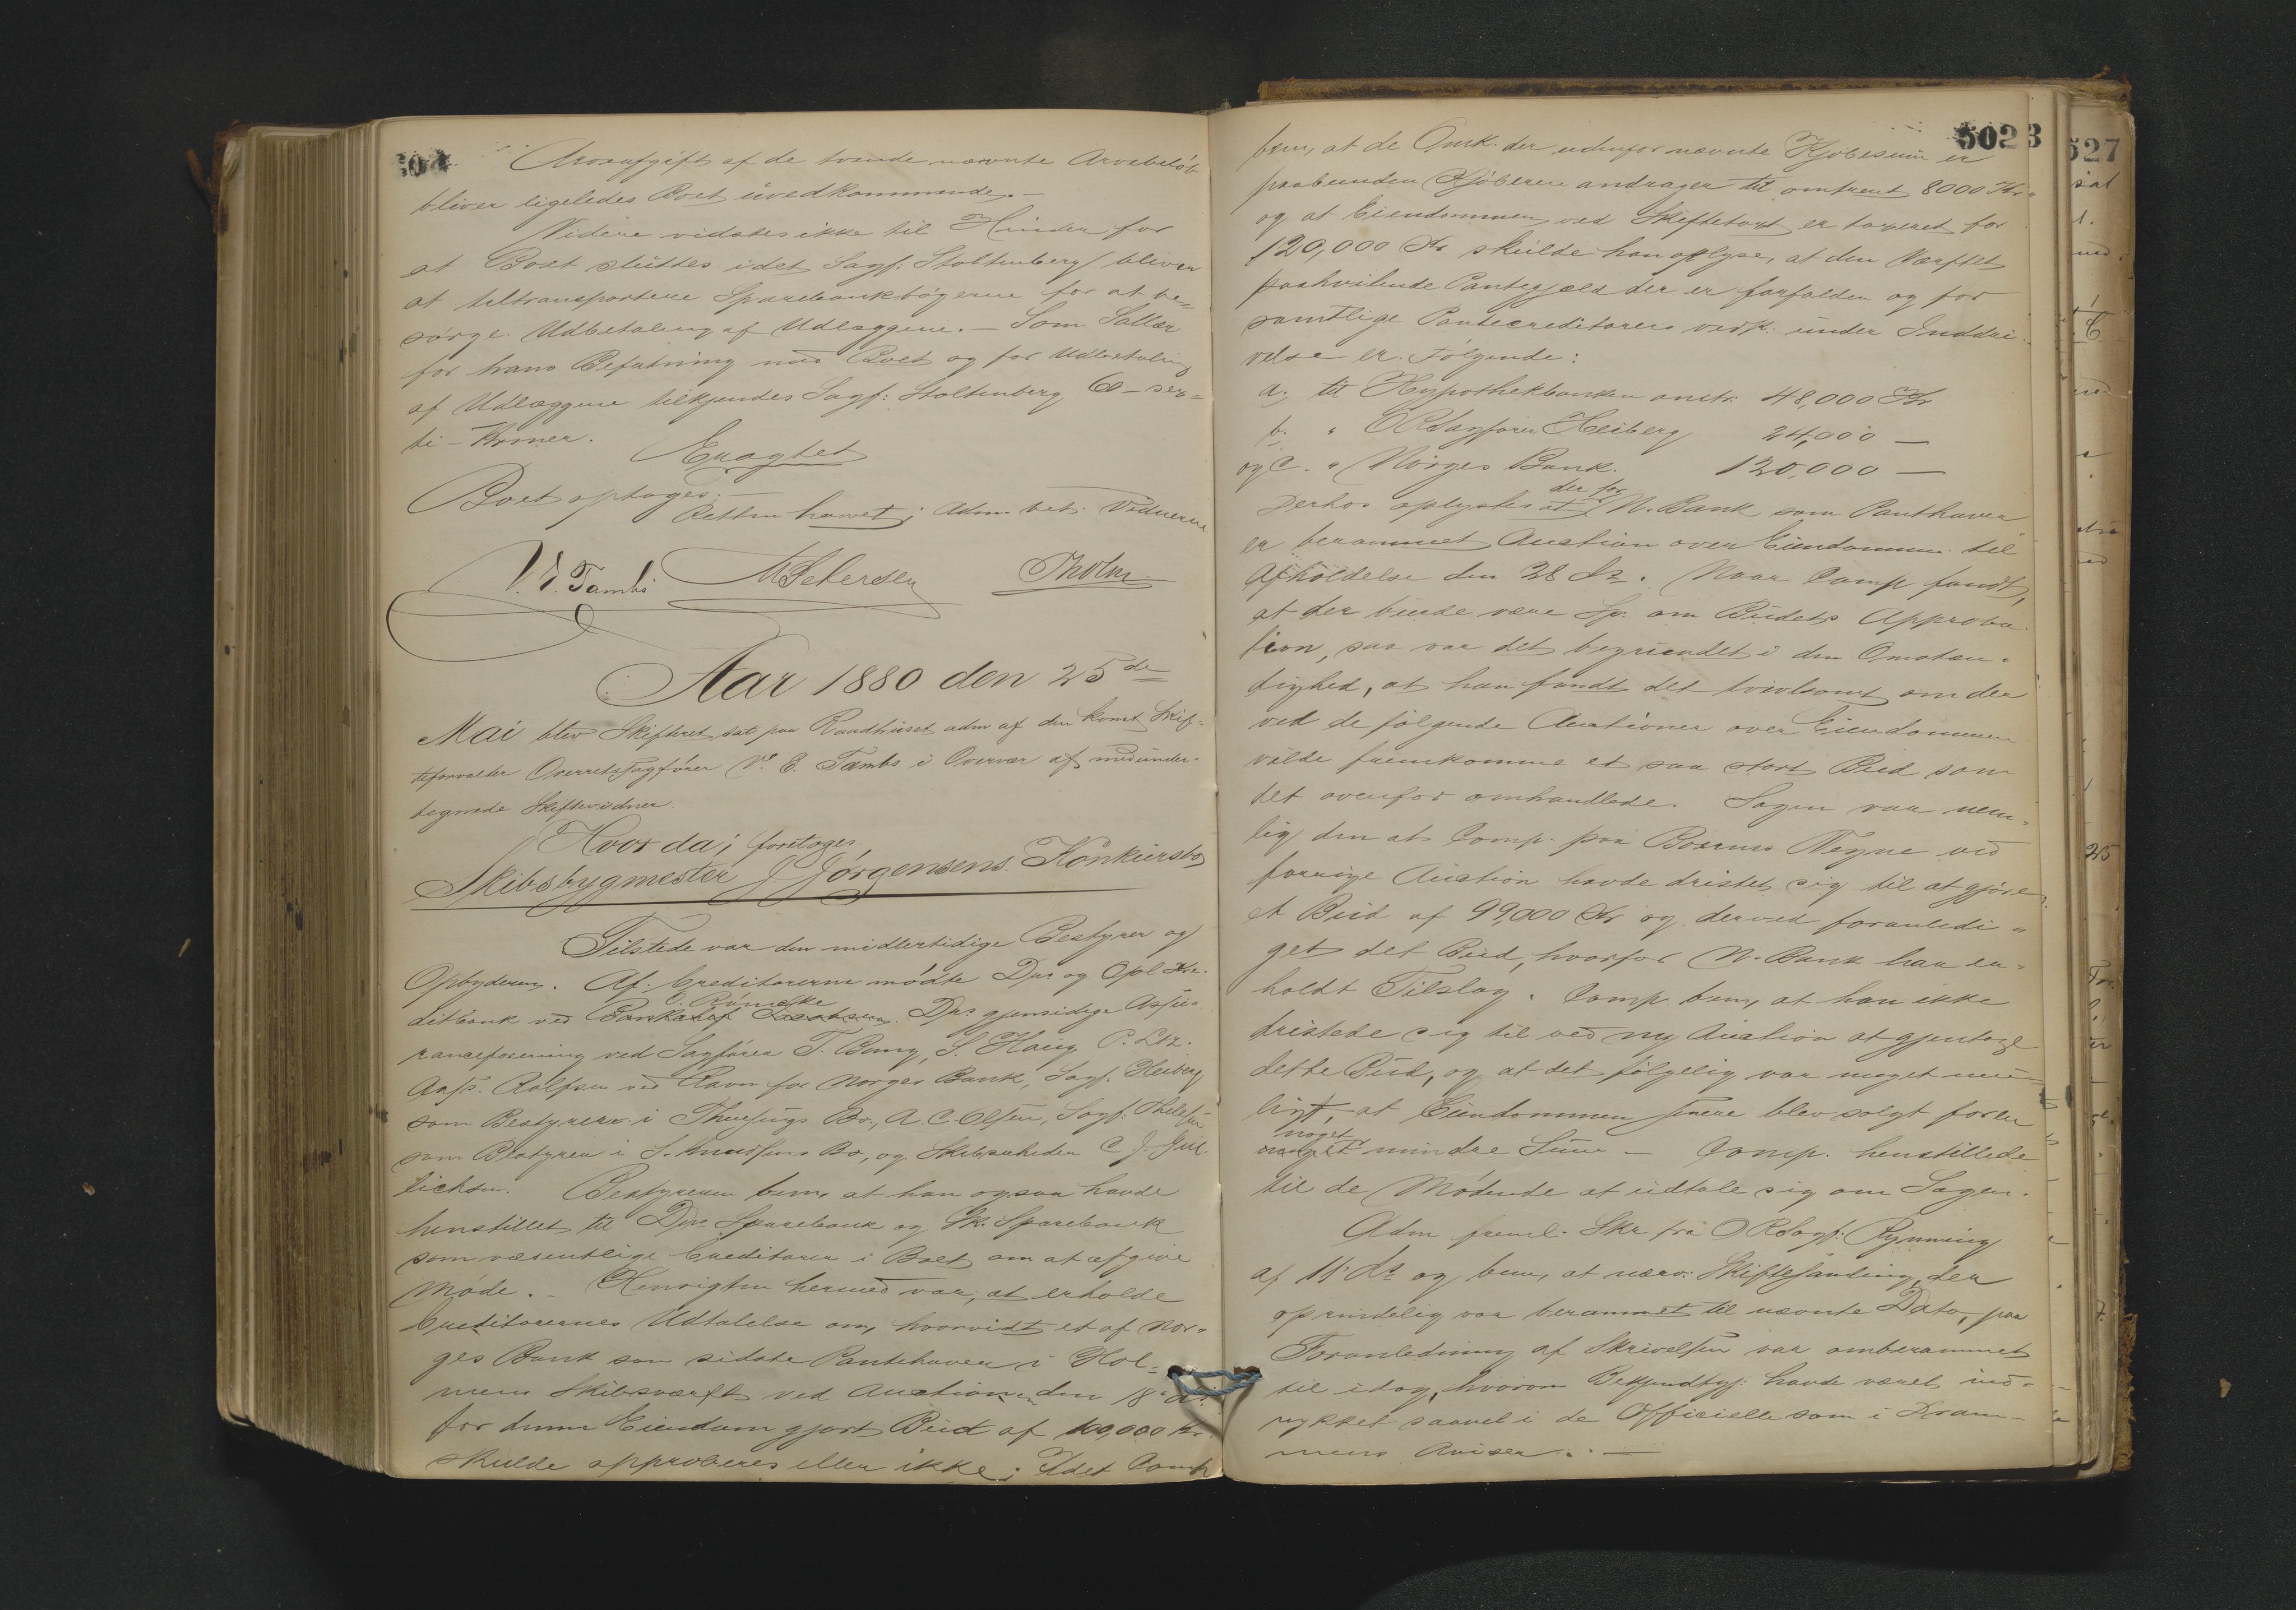 Arveafgift af de tvende nævnte Arvebeløb
bliver ligeledes Boet uvedkommende.-
Videre vidstes ikke til Hinder for
at Boet sluttes idet Sagf: Stoltenberg bliver
at tiltransportere Sparebankbøgerne for at be=
sørge Udbetaling af Udlæggene. - Som Sallær
for hans Befatning med Boet og for Udbetaling
af Udlæggene tilkjendes Sagf: Stoltenberg 60 - sex=
ti - Kroner.
Eragtet
Boet optages.-
Retten hævet; Adm. bet. Vidnerne
V. E. Tambs M Petersen Tholm
Aar 1880 den 25de
Mai blev Skifteret sat paa Raadhuset adm af den konst Skif-
teforvalter Overretssagfører V. E. Tambs i Overvær af medunder-
tegnede Skiftevidner.
Hvor da; foretoges
Skibsbygmester J. Jørgensens Konkursbo
Tilstede var den midlertidige Bestyrer og
Opbyderen. Af Creditorerne mødte Drs og Opl Kre-
O. Rømcke
ditbank ved Bankchef Jacobsen. Drs gjensidige Assu-
ranceforening ved Sagfører T. Bang, S. Haug P. Ltz.
Aass. Rolfsen ved Ravn for Norges Bank, Sagf. Heiberg
som Bestyrer i Bo, A. C. Olsen, Sagf. Thelefsen
som Bestyrer i S. Knudsens Bo, og Skibsreheder C J. Gul-
lichsen. Bestyreren bem. at han ogsaa havde
henstillet til Drs. Sparebank og Sk. Sparebank
som væsentlige Creditorer i Boet om at afgive
Møde. - Hensigten hermed var, at erholde
Creditorernes Udtalelse om, hvorvidt et af Nor-
ges Bank som sidste Panthaver i Hol-
mens Skibsværft ved Auctionen den 18 ds
for denne Eiendom gjort Bud af 100,000 Kr.
skulde approberes eller ikke; Idet Comp
5023
bem. at de Omk. der udenfor nævnte Kjøbesum er
paabunden Kjøberen andrager til omtrent 8000 Kr.
og at Eiendommen ved Skiftetaxt er taxeret for
120,000 Kr skulde han oplyse, at den Værftet
paahvilende Pantegjæld der er forfalden og for
samtlige Pantecreditorers vedk: under Inddri
velse er følgende:
a, til Hypothekbanken anstr. 48,000 Kr
b. " ORSagfører Heiberg 24,000 —
og c. " Norges Bank. 120,000 —
der for
Derhos oplystes at N. Bank som Panthaver
er berammet Auction over Eiendommen til
Afholdelse den 28 ds. Naar Comp fandt,
at der burde være Sp. om Budets Approba
tion, saa var det begrundet i den Omstæn-
dighed, at han fandt det tvivlsomt om der
ved de følgende Auctioner over Eiendommen
vilde fremkomme et saa stort Bud som
det ovenfor omhandlede. Sagen var nem-
lig den at Comp. paa Boernes Vegne ved
forrige Auction havde dristet sig til at gjøre
et Bud af 99,000 Kr og derved foranledi-
get det Bud, hvorfor N. Bank har er-
holdt Tilslag. Comp. bem, at han ikke
dristede sig til ved ny Auction at gjentage
dette Bud, og at det følgelig var meget mu-
ligt, at Eiendommen senere blev solgt for en
noget
meget mindre Sum - Comp. henstillede
til de Mødende at udtale sig om Sagen.
Adm freml. Skr fra ORSagf: Rynning
af 11 ds og bem, at nærv: Skiftesamling, der
oprindelig var berammet til nævnte Dato, paa
Foranledning af Skrivelsen var omberammet
til idag, hvorom Bekjendtgj: havde været ind-
rykket saavel i de Officielle som i Dram-
mens Aviser. —
527